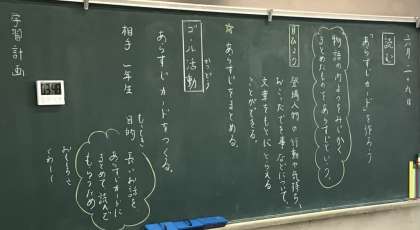 六月二十九日
読む
「あらすじカード」を作ろう
物語の内ようをみじかく
まとめたものをあらすじという。
めあて
登場人物の行動や気持ち、
おこったできごとなどについて、
文章をもとにとらえる
ことができる。
あらすじをまとめる。
ゴール活動
かつどう
あらすじカードをつくる。
相手 一年生
もくてき
目的 長いお話を
あらすじカードに
まとめて読んで
もらうため
くわしく
学習計画